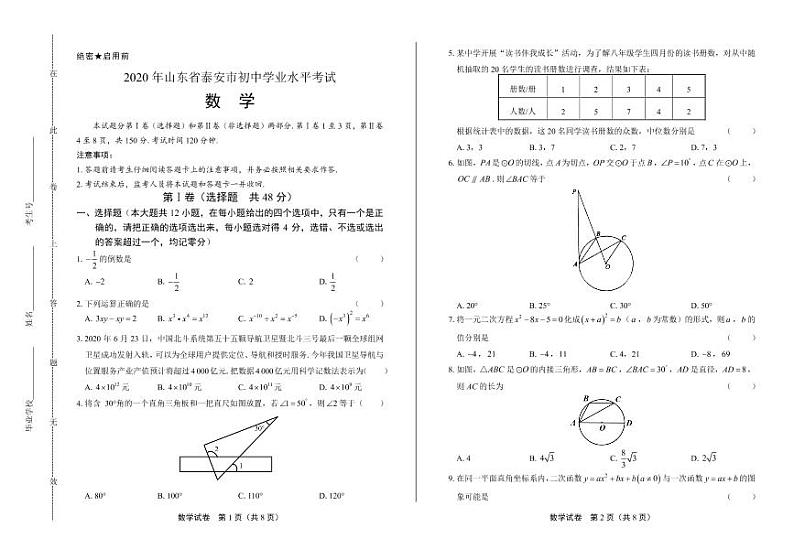 绝密★启用前
2020 年山东省泰安市初中学业水平考试
数 学
本试题分第Ⅰ卷（选择题）和第Ⅱ卷（非选择题）两部分.第Ⅰ卷 1 至 3 页，第Ⅱ卷
4 至 8 页，共 150 分.考试时间 120 分钟.
注意事项：
1. 答题前请考生仔细阅读答题卡上的注意事项，并务必按照相关要求作答.
2. 考试结束后，监考人员将本试题和答题卡一并收回.
第Ⅰ卷（选择题 共 48 分）
一、选择题（本大题共 12 小题，在每小题给出的四个选项中，只有一个是正
确的，请把正确的选项选出来，每小题选对得 4 分，选错、不选或选出
的答案超过一个，均记零分）
1. -1/2 的倒数是 （ ）
A. -2 B. -1/2 C. 2 D. 1/2
2. 下列运算正确的是 （ ）
A. 3xy-xy=2 B. x³•x⁴=x¹² C. x⁻¹⁰÷x²=x⁻⁵ D. (-x³)²=x⁶
3. 2020 年 6 月 23 日，中国北斗系统第五十五颗导航卫星暨北斗三号最后一颗全球组网
卫星成功发射入轨，可以为全球用户提供定位、导航和授时服务.今年我国卫星导航与
位置服务产业产值预计将超过 4 000 亿元.把数据 4 000 亿元用科学记数法表示为（ ）
A. 4×10¹² 元 B. 4×10¹⁰ 元 C. 4×10¹¹ 元 D. 4×10⁹ 元
4. 将含 30°角的一个直角三角板和一把直尺如图放置，若∠1=50°，则∠2 等于（ ）
30°
2
1
A. 80° B. 100° C. 110° D. 120°
数学试卷 第 1 页（共 8 页）
5. 某中学开展“读书伴我成长”活动，为了解八年级学生四月份的读书册数，对从中随
机抽取的 20 名学生的读书册数进行调查，结果如下表：
册数/册 1 2 3 4 5
人数/人 2 5 7 4 2
根据统计表中的数据，这 20 名同学读书册数的众数，中位数分别是 （ ）
A. 3，3 B. 3，7 C. 2，7 D. 7，3
6. 如图，PA 是⊙O 的切线，点 A 为切点，OP 交⊙O 于点 B，∠P=10°，点 C 在⊙O 上，
OC∥AB. 则∠BAC 等于 （ ）
P
B
C
A
O
A. 20° B. 25° C. 30° D. 50°
7. 将一元二次方程 x²-8x-5=0 化成 (x+a)²=b（a，b 为常数）的形式，则 a，b 的
值分别是 （ ）
A. -4，21 B. -4，11 C. 4，21 D. -8，69
8. 如图，△ABC 是⊙O 的内接三角形，AB=BC，∠BAC=30°，AD 是直径，AD=8，
则 AC 的长为 （ ）
B C
A O D
A. 4 B. 4√3 C. 8/3 √3 D. 2√3
9. 在同一平面直角坐标系内，二次函数 y=ax²+bx+b(a≠0) 与一次函数 y=ax+b 的图
象可能是 （ ）
数学试卷 第 2 页（共 8 页）
考生号
姓名
毕业学校
在
此
卷
上
答
题
无
效